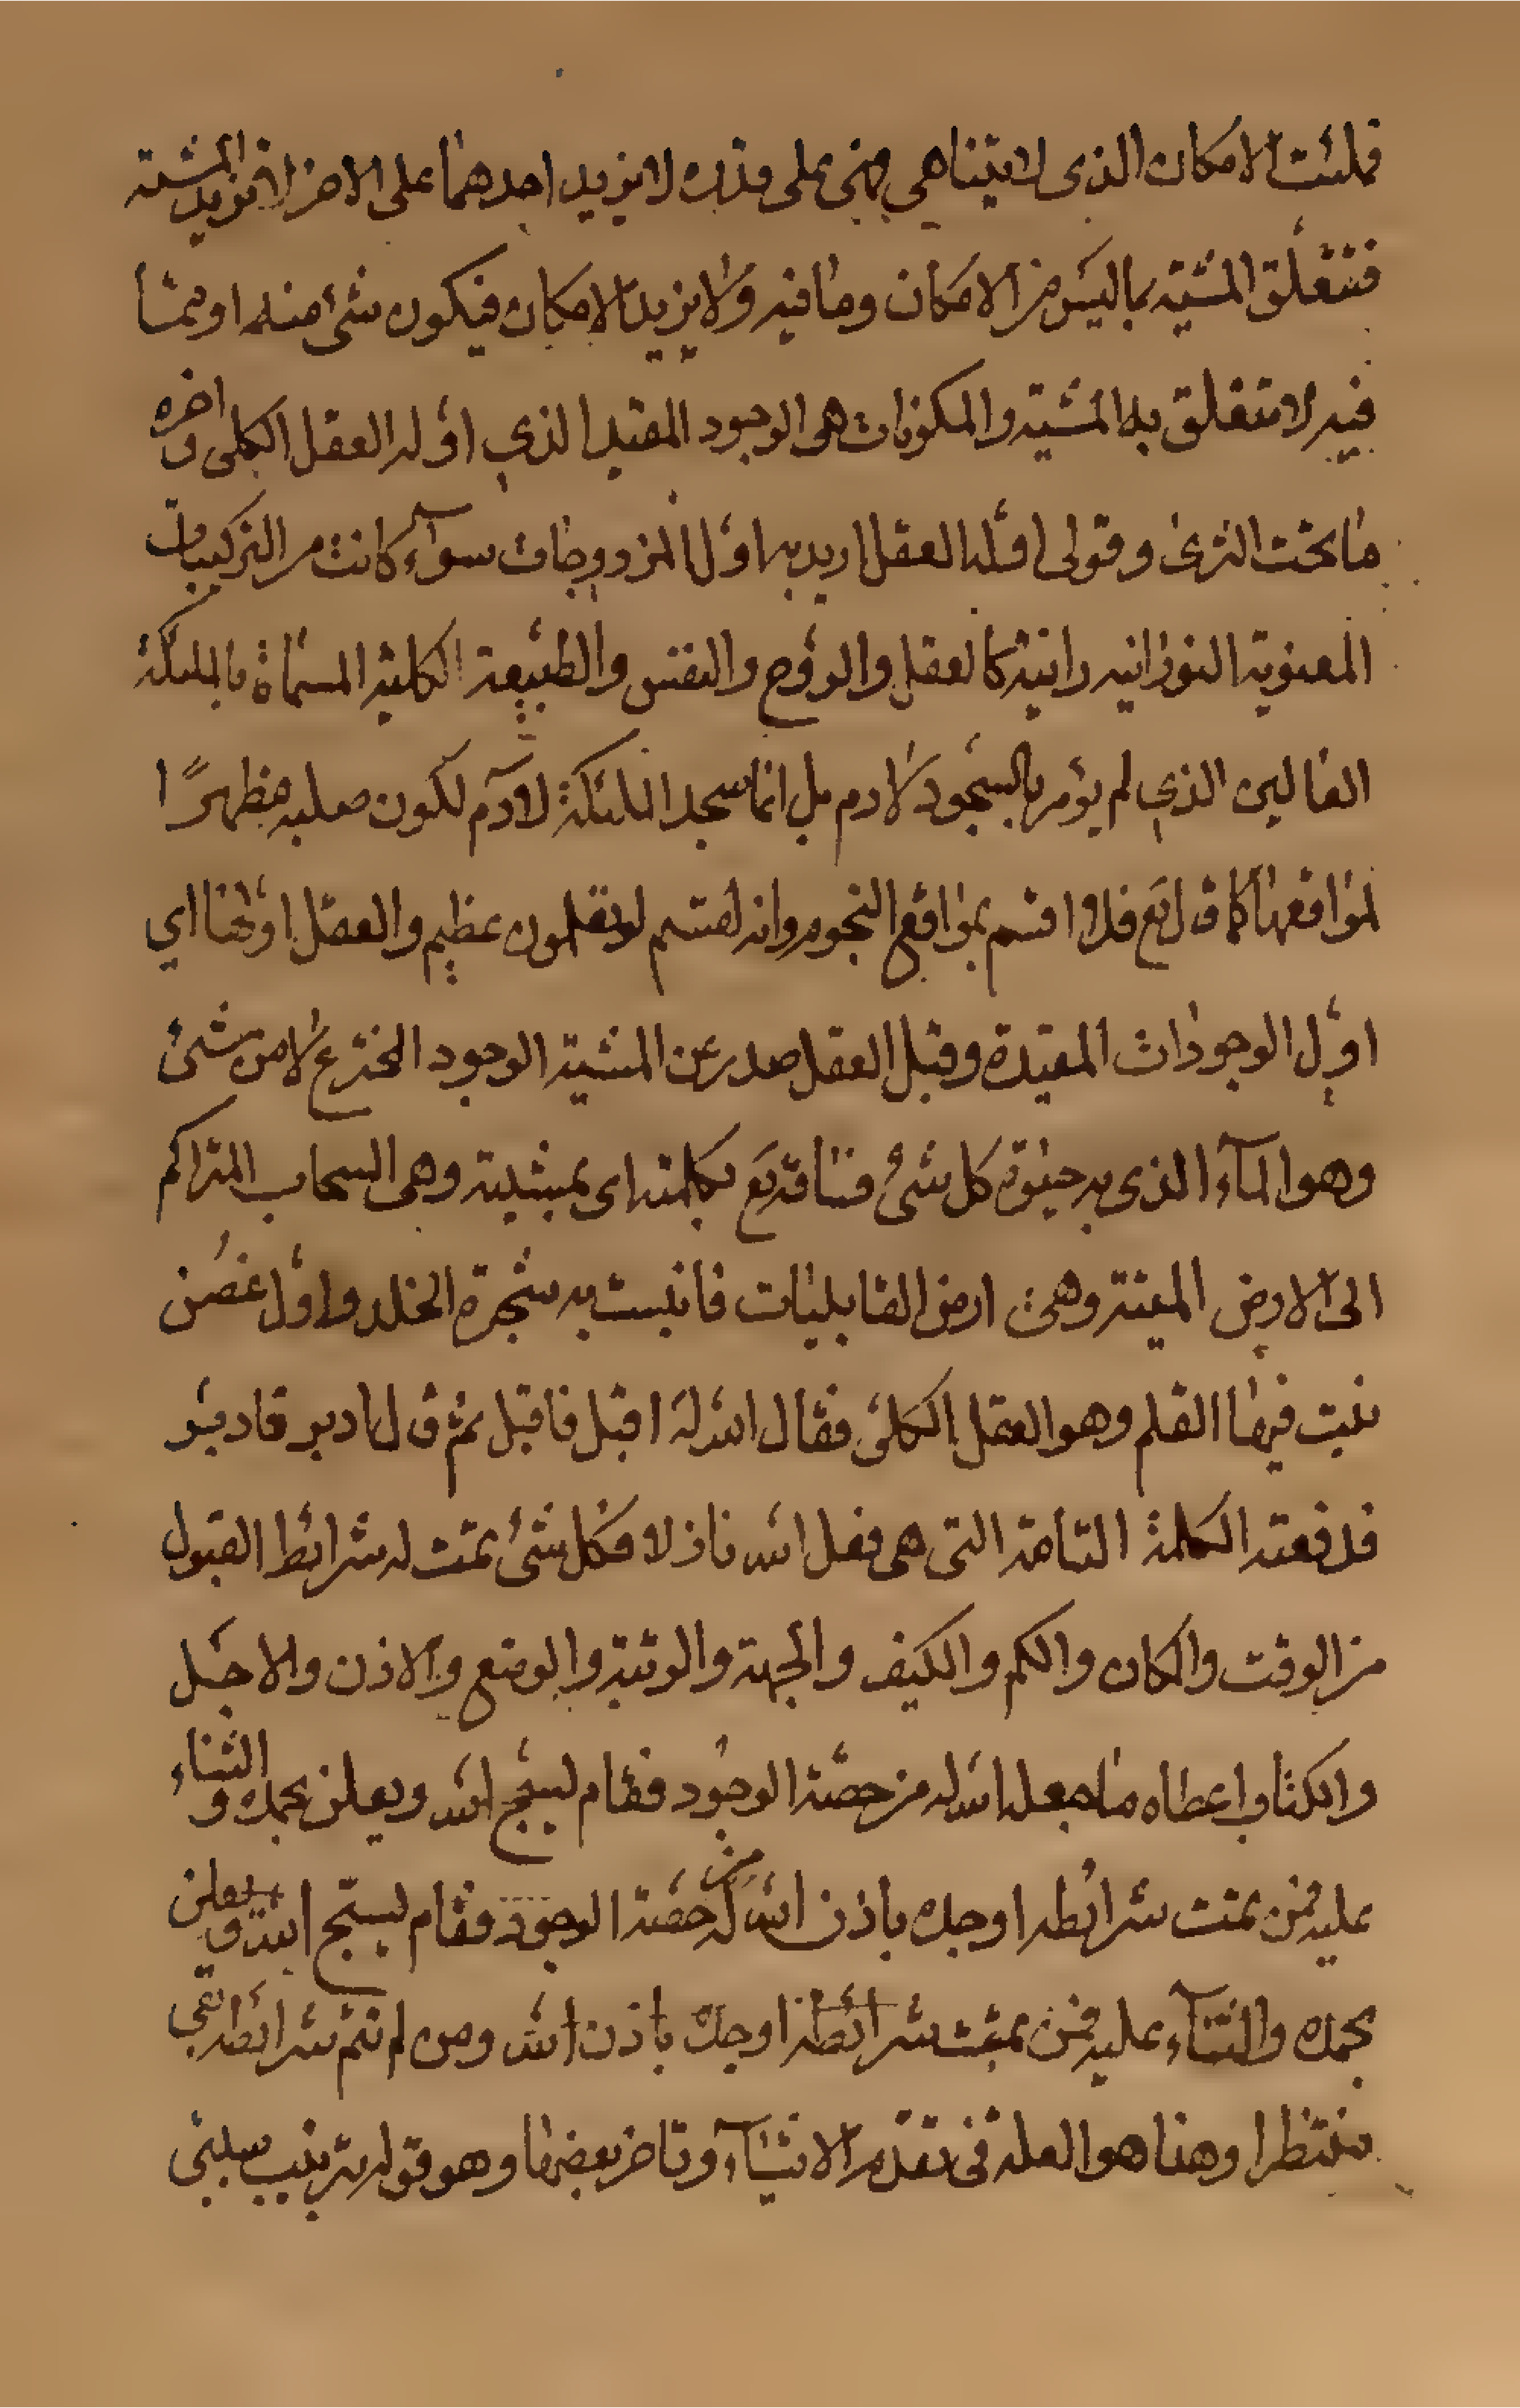 فملئت الامكان الذى لا يتناهى فهى على قدره لا يزيد احدهما على الاخر لا تزيد المشية
فتتعلق المشية بما ليس من الامكان وما فيه ولا يزيد الامكان فيكون شئ منه او مما
فيه لا تتعلق به المشية والمكونات هى الوجود المقيد الذي اوله العقل الكلى و اخره
ما تحت الثرى وقولى اوله العقل اريد به اول المزدوجات سوآء كانت من التركيبات
المعنوية النورانيه رانية كالعقل والروح والنفس والطبيعة الكلية المسماة بالملئكة
العالين الذي لم يؤمر بالسجود لادم بل انما سجد الملئكة لآدم لكون صلبه مظهرًا
لمواقعها كما قال تع فلا اقسم بمواقع النجوم وانه لقسم لو تعلمون عظيم والعقل اولها اي
اول الوجودات المقيدة وقبل العقل صدر عن المشية الوجود المخترع لا من شئ
وهو المآء الذى به حيوة كل شئ فساقه تع بكلمته اى بمشيته وهى السحاب المتراكم
الى الارض الميتة وهى ارض القابليات فانبت به شجرة الخلد واول غصن
نبت فيها القلم وهو العقل الكلى فقال الله له اقبل فاقبل ثم قال ادبر فادبر
فدفعته الكلمة التامة التى هى فعل الله نازلا فكل شئ تمت له شرائط القبول
من الوقت والمكان والكم والكيف والجهة والرتبة والوضع والاذن والاجل
والكتاب اعطاه ما جعل الله له من حصة الوجود فقام ليسبح الله ويعلن بحمده و الثناء
عليه فمن تمت شرائطه اوجده باذن الله له من حصة الوجود فقام ليسبح الله و يعلن
بحمده والثنآء عليه فمن تمت شرائطه اوجده باذن الله ومن لم تتم شرائطه بقى
منتظرا وهذا هو العلة فى تقدم الاشيآء وتاخر بعضها وهو قوله بترتيب